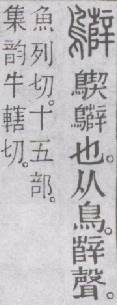 也。从鳥。辥聲。
魚列切。十五部。
集韵牛轄切。